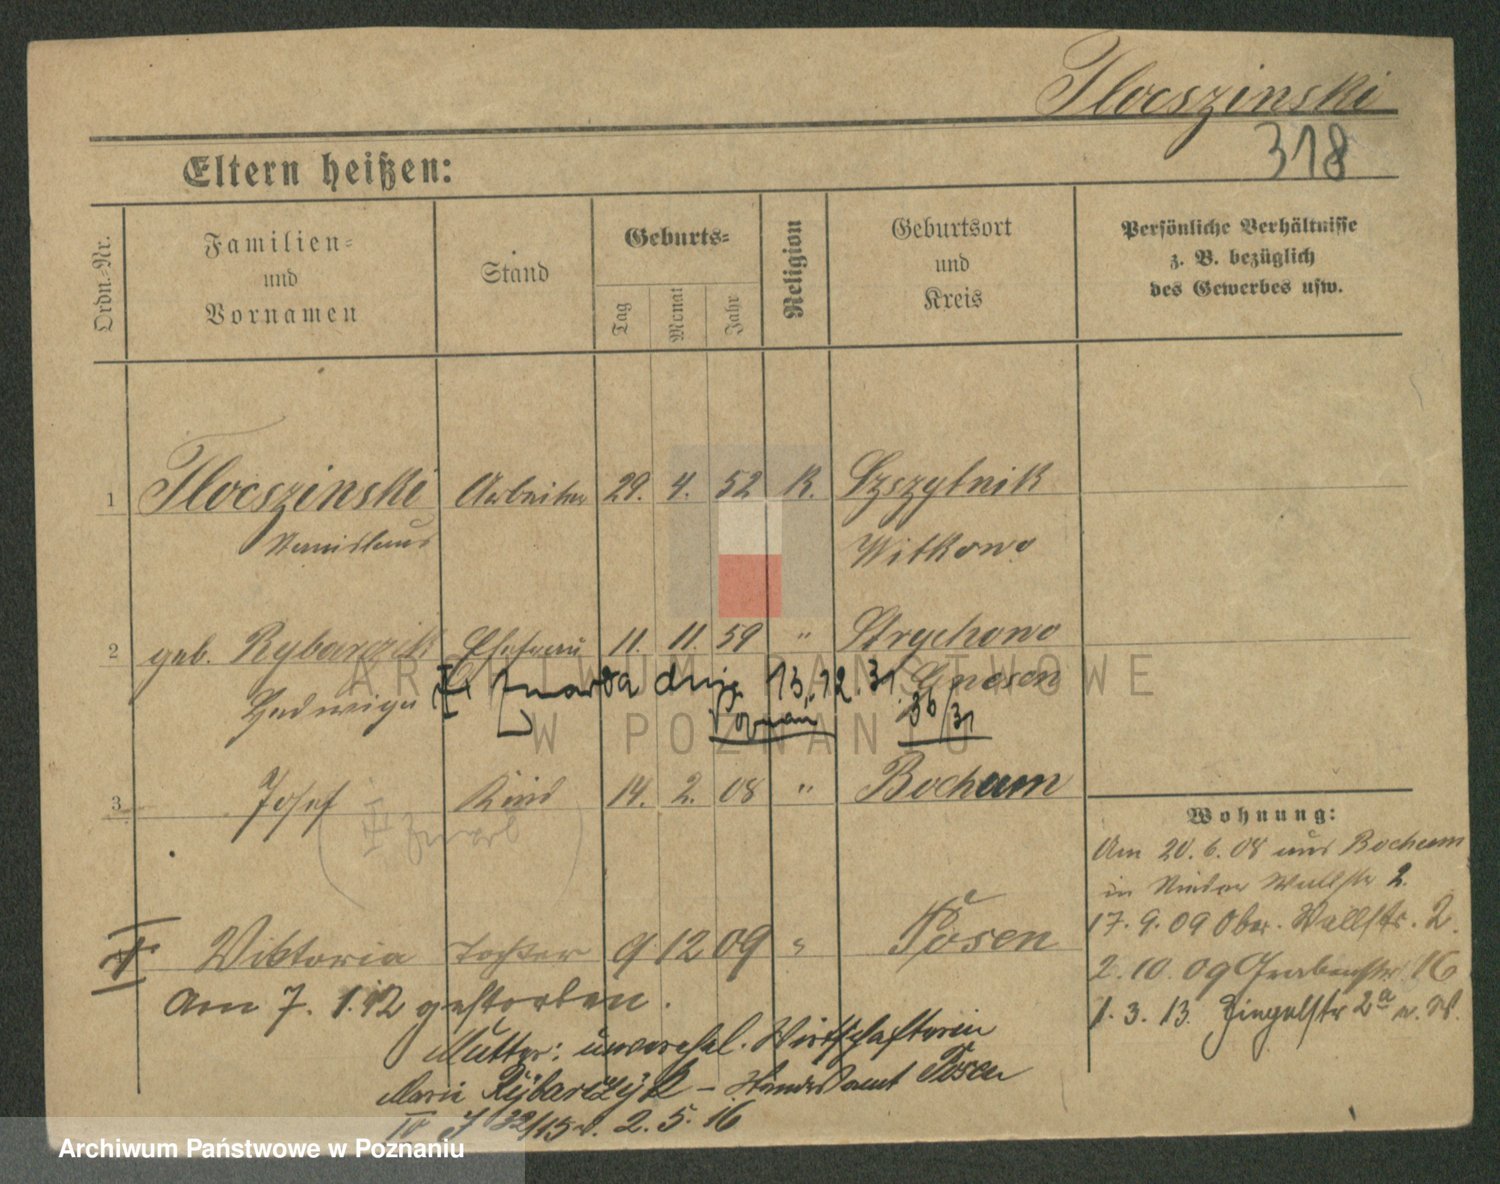 Tloczinski
318
Eltern heißen:
Ordn.-Nr.
Familien-
und
Vornamen
Stand
Geburts-
Tag
Monat
Jahr
Religion
Geburtsort
und
Kreis
Persönliche Verhältnisse
z. B. bezüglich
des Gewerbes usw.
1 Tlocszinski Arbeiter 29. 4. 52 K.
Stanislaus Witkowo
2 geb. Rybarczik Ehefrau 11. 11. 59 " Strychowo
Hedwiga Gnesen
zmarła dnia 13.12.31
Poznań 36/31
3 Josef Kind 14. 2. 08 " Bochum
zmarł
Wohnung:
Am 20. 6. 08 aus Bochum
in Nieder Wallstr 2.
17. 9. 09 Ober. Wallstr. 2.
2. 10. 09 Grabenstr 16
1. 3. 13. Ziegelstr 2a
Viktoria Tochter 9 12 09 " Posen
Am 7. 1. 12 gestorben.
Mutter: unverehel. Wirtschafterin
Marie Rÿbarczÿk – Standesamt Posen
2. 5. 16
ARCHIWUM PAŃSTWOWE
W POZNANIU
Archiwum Państwowe w Poznaniu